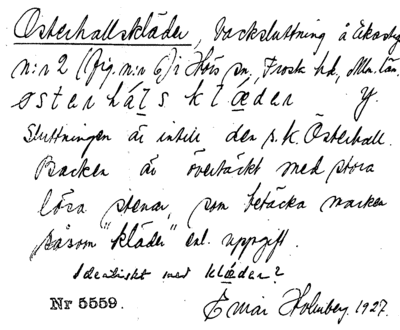 Österhallskläder, backsluttning å Ekastig
n:r 2 (fig. n:r 6) i Hörs sn, Frosta hd, Mlm. län.
østerhåls klæder Y.
Sluttningen är intill den s.k. Österhall.
Backen är övertäckt med stora
lösa stenar, som betäcka marken
såsom "kläder" enl. uppgift.
Identiskt med klæder?
Nr 5559. Elmar Holmberg. 1927.